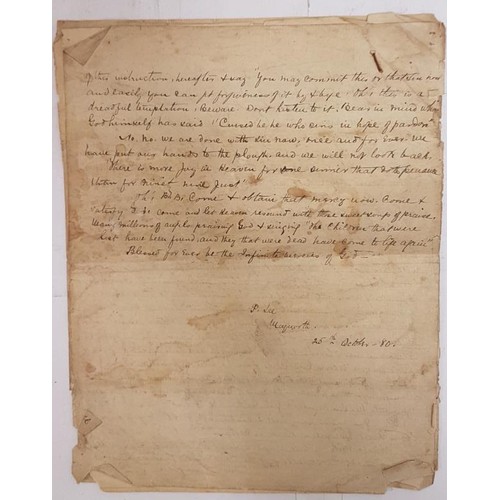 of this instruction, hereafter & say "You may commit this or that sin now
and easily you can get forgiveness of it by & bye". Oh! this is a
dreadful temptation. Beware. Dont listen to it. Bear in mind what
God himself has said "Cursed be he who sins in hope of pardon"
No, no, we are done with sin now, once and for ever, we
have put our hands to the plough, and we will not look back.
There is more joy in Heaven for one sinner that doth penance
than for ninety nine just
Oh! B.B. Come & obtain that mercy now. Come &
come and let Heaven resound with these sweet songs of
many millions of angels praising God & singing "The children that were
lost have been found, and they that were dead have come to life again"
Blessed for ever be the Infinite mercies of God
P. Lee
Maynooth.
25th Octbr. - 80.